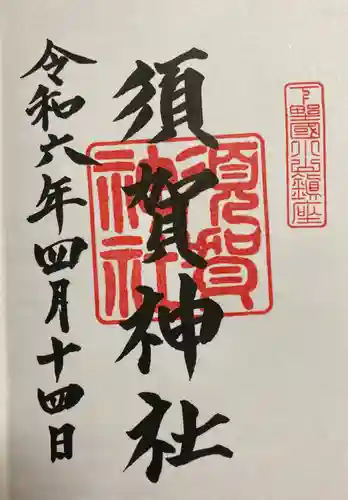 下野國小山鎮座
須賀神社
須賀神社
令和六年四月十四日